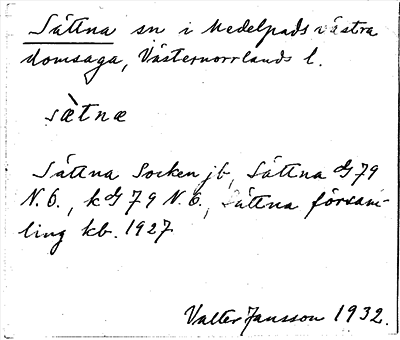 Sättna sn i Medelpads västra
domsaga, Västernorrlands l.
sæ̀tnæ
Sättna Socken jb, Sättna G 79
N. 6., k G 79 N. 6., Sättna försam-
ling kb. 1927
Valter Jansson 1932.